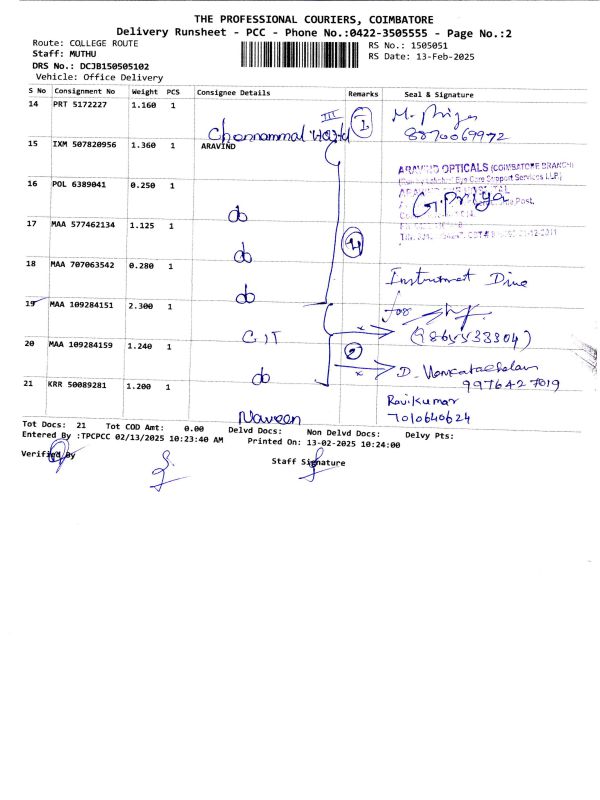 THE PROFESSIONAL COURIERS, COIMBATORE
Delivery Runsheet - PCC - Phone No.:0422-3505555 - Page No.:2
Route: COLLEGE ROUTE
Staff: MUTHU
DRS No.: DCJB150505102
Vehicle: Office Delivery
RS No.: 1505051
RS Date: 13-Feb-2025
S No Consignment No Weight PCS Consignee Details Remarks Seal & Signature
14 PRT 5172227 1.160 1
III
Channammal
M. Priya
8870069972
15 IXM 507820956 1.360 1 ARAVIND
ARAVIND OPTICALS (COIMBATORE BRANCH)
Eye Care Support Services LLP)
16 POL 6389041 0.250 1 do
G. Priya
Post,
17 MAA 577462134 1.125 1 do
4
18 MAA 707063542 0.280 1 do
Instrument
19 MAA 109284151 2.300 1 CIT
for
(9865533304)
20 MAA 109284159 1.240 1 do
2
D. Venkatachalam
9976427019
21 KRR 50089281 1.200 1 Naveen
Ravikumar
7010640624
Tot Docs: 21 Tot COD Amt: 0.00 Delvd Docs: Non Delvd Docs: Delvy Pts:
Entered By :TPCPCC 02/13/2025 10:23:40 AM Printed On: 13-02-2025 10:24:00
Verified By
Staff Signature